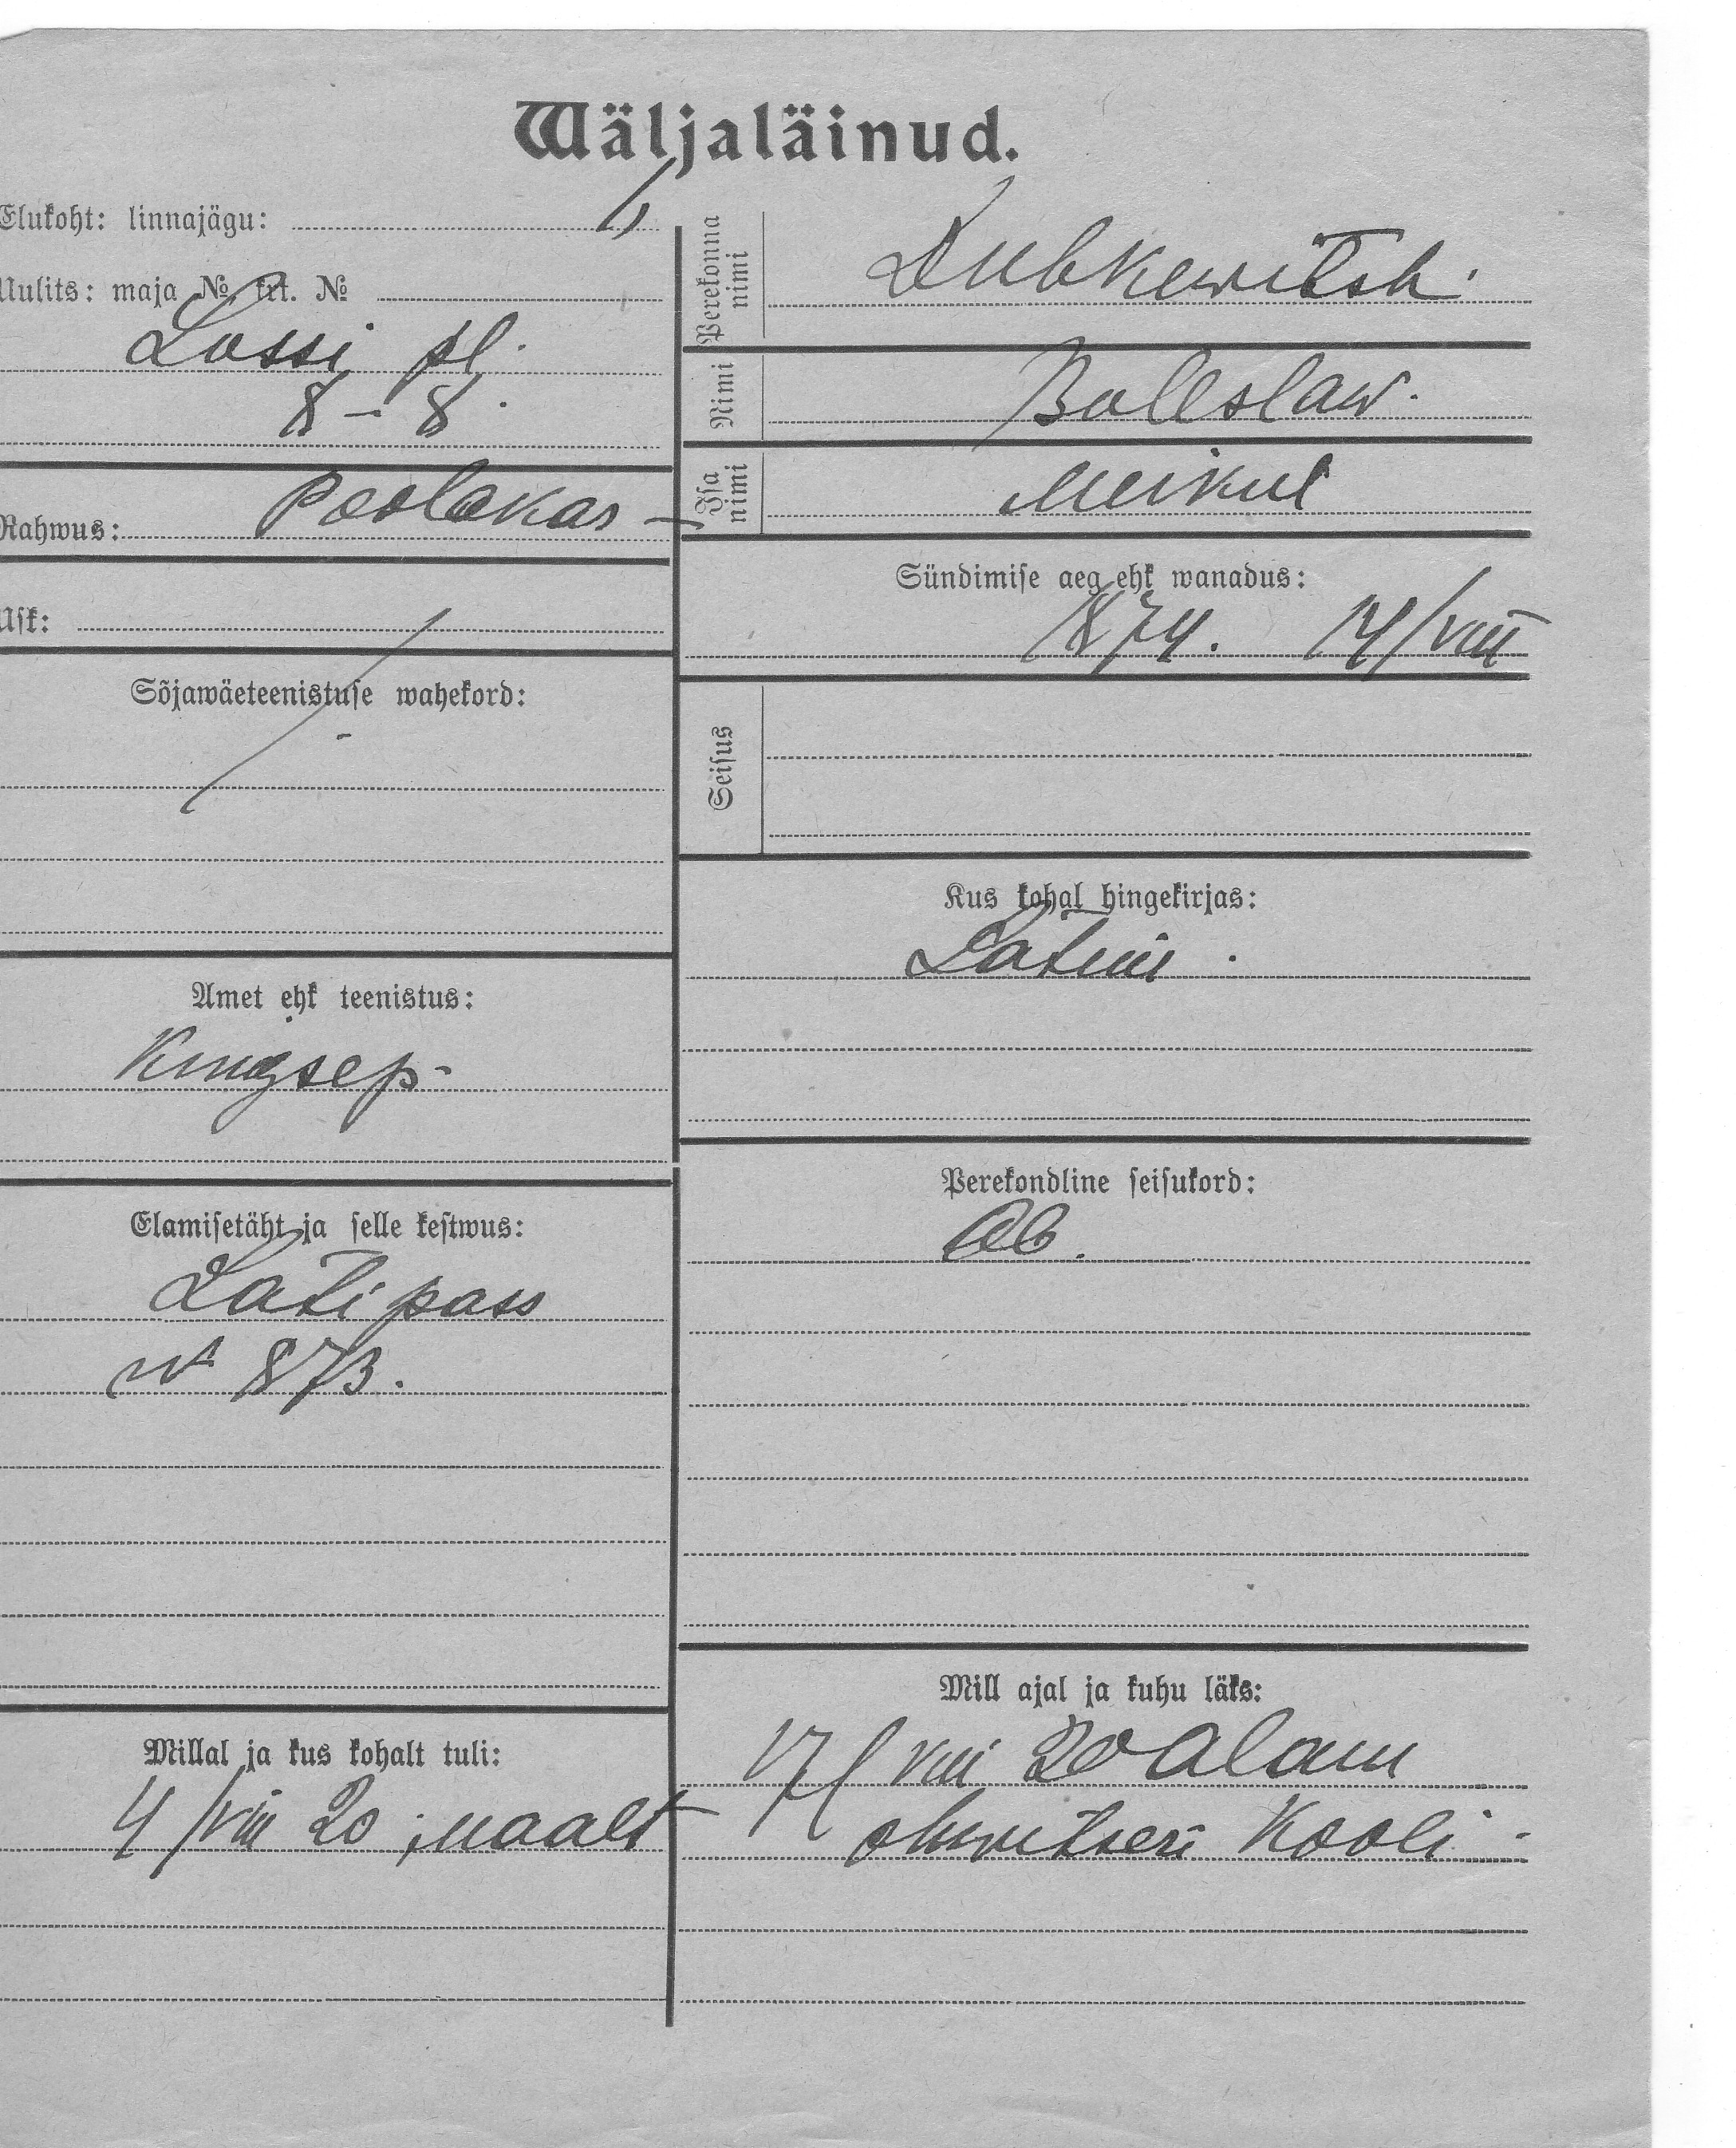 Wäljaläinud.
Elukoht: linnajägu:
Uulits: maja № krt. №
Lossi pl.
8 – 8.
Rahwus: Poolakas
Usk:
Sõjawäeteenistuse wahekord:
Amet ehk teenistus:
Kingsep
Elamisetäht ja selle kestwus:
Läti pass
№ 873.
Millal ja kus kohalt tuli:
4/VIII 20 maalt
Perekonna nimi
Dubkewitsh.
Nimi
Boleslaw.
Isa nimi
Meikul
Sündimise aeg ehk wanadus:
1874. 14/VIII
Seisus
Kus kohal hingekirjas:
Perekondline seisukord:
Ab.
Mill ajal ja kuhu läks:
17/VIII 20 Alam
ohwitseri Kooli